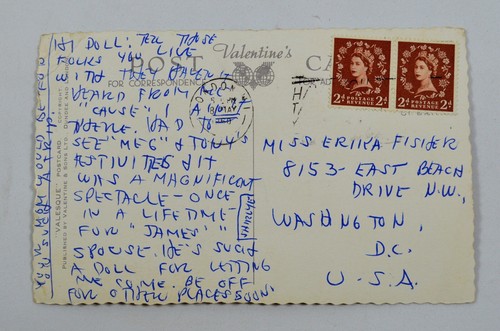 HI DOLL: TELL THOSE
FOLKS YOU LIVE
WITH THEY HAVEN'T
HEARD FROM ABD
"CAUSE" I
THERE. HAD TO
SEE "MEG" & TONY'S
FESTIVITIES & IT
WAS A MAGNIFICENT
SPECTACLE - ONCE
IN A LIFETIME
FOR "JAMES'"
SPOUSE. HE'S SUCH
A DOLL FOR LETTING
ME COME. BE OFF
FOR OTHER PLACES SOON.
YOUR MOM WOULD BE FUN
ON SUCH A TRIP.
POST CARD
Valentine's
FOR CORRESPONDENCE
"VALESQUE" POSTCARD
COPYRIGHT
PUBLISHED BY VALENTINE & SONS LTD. DUNDEE AND
2d POSTAGE REVENUE 2d
2d POSTAGE REVENUE 2d
MISS ERIKA FISHER
8153- EAST BEACH
DRIVE N.W.,
WASHINGTON,
D.C.
U.S.A.